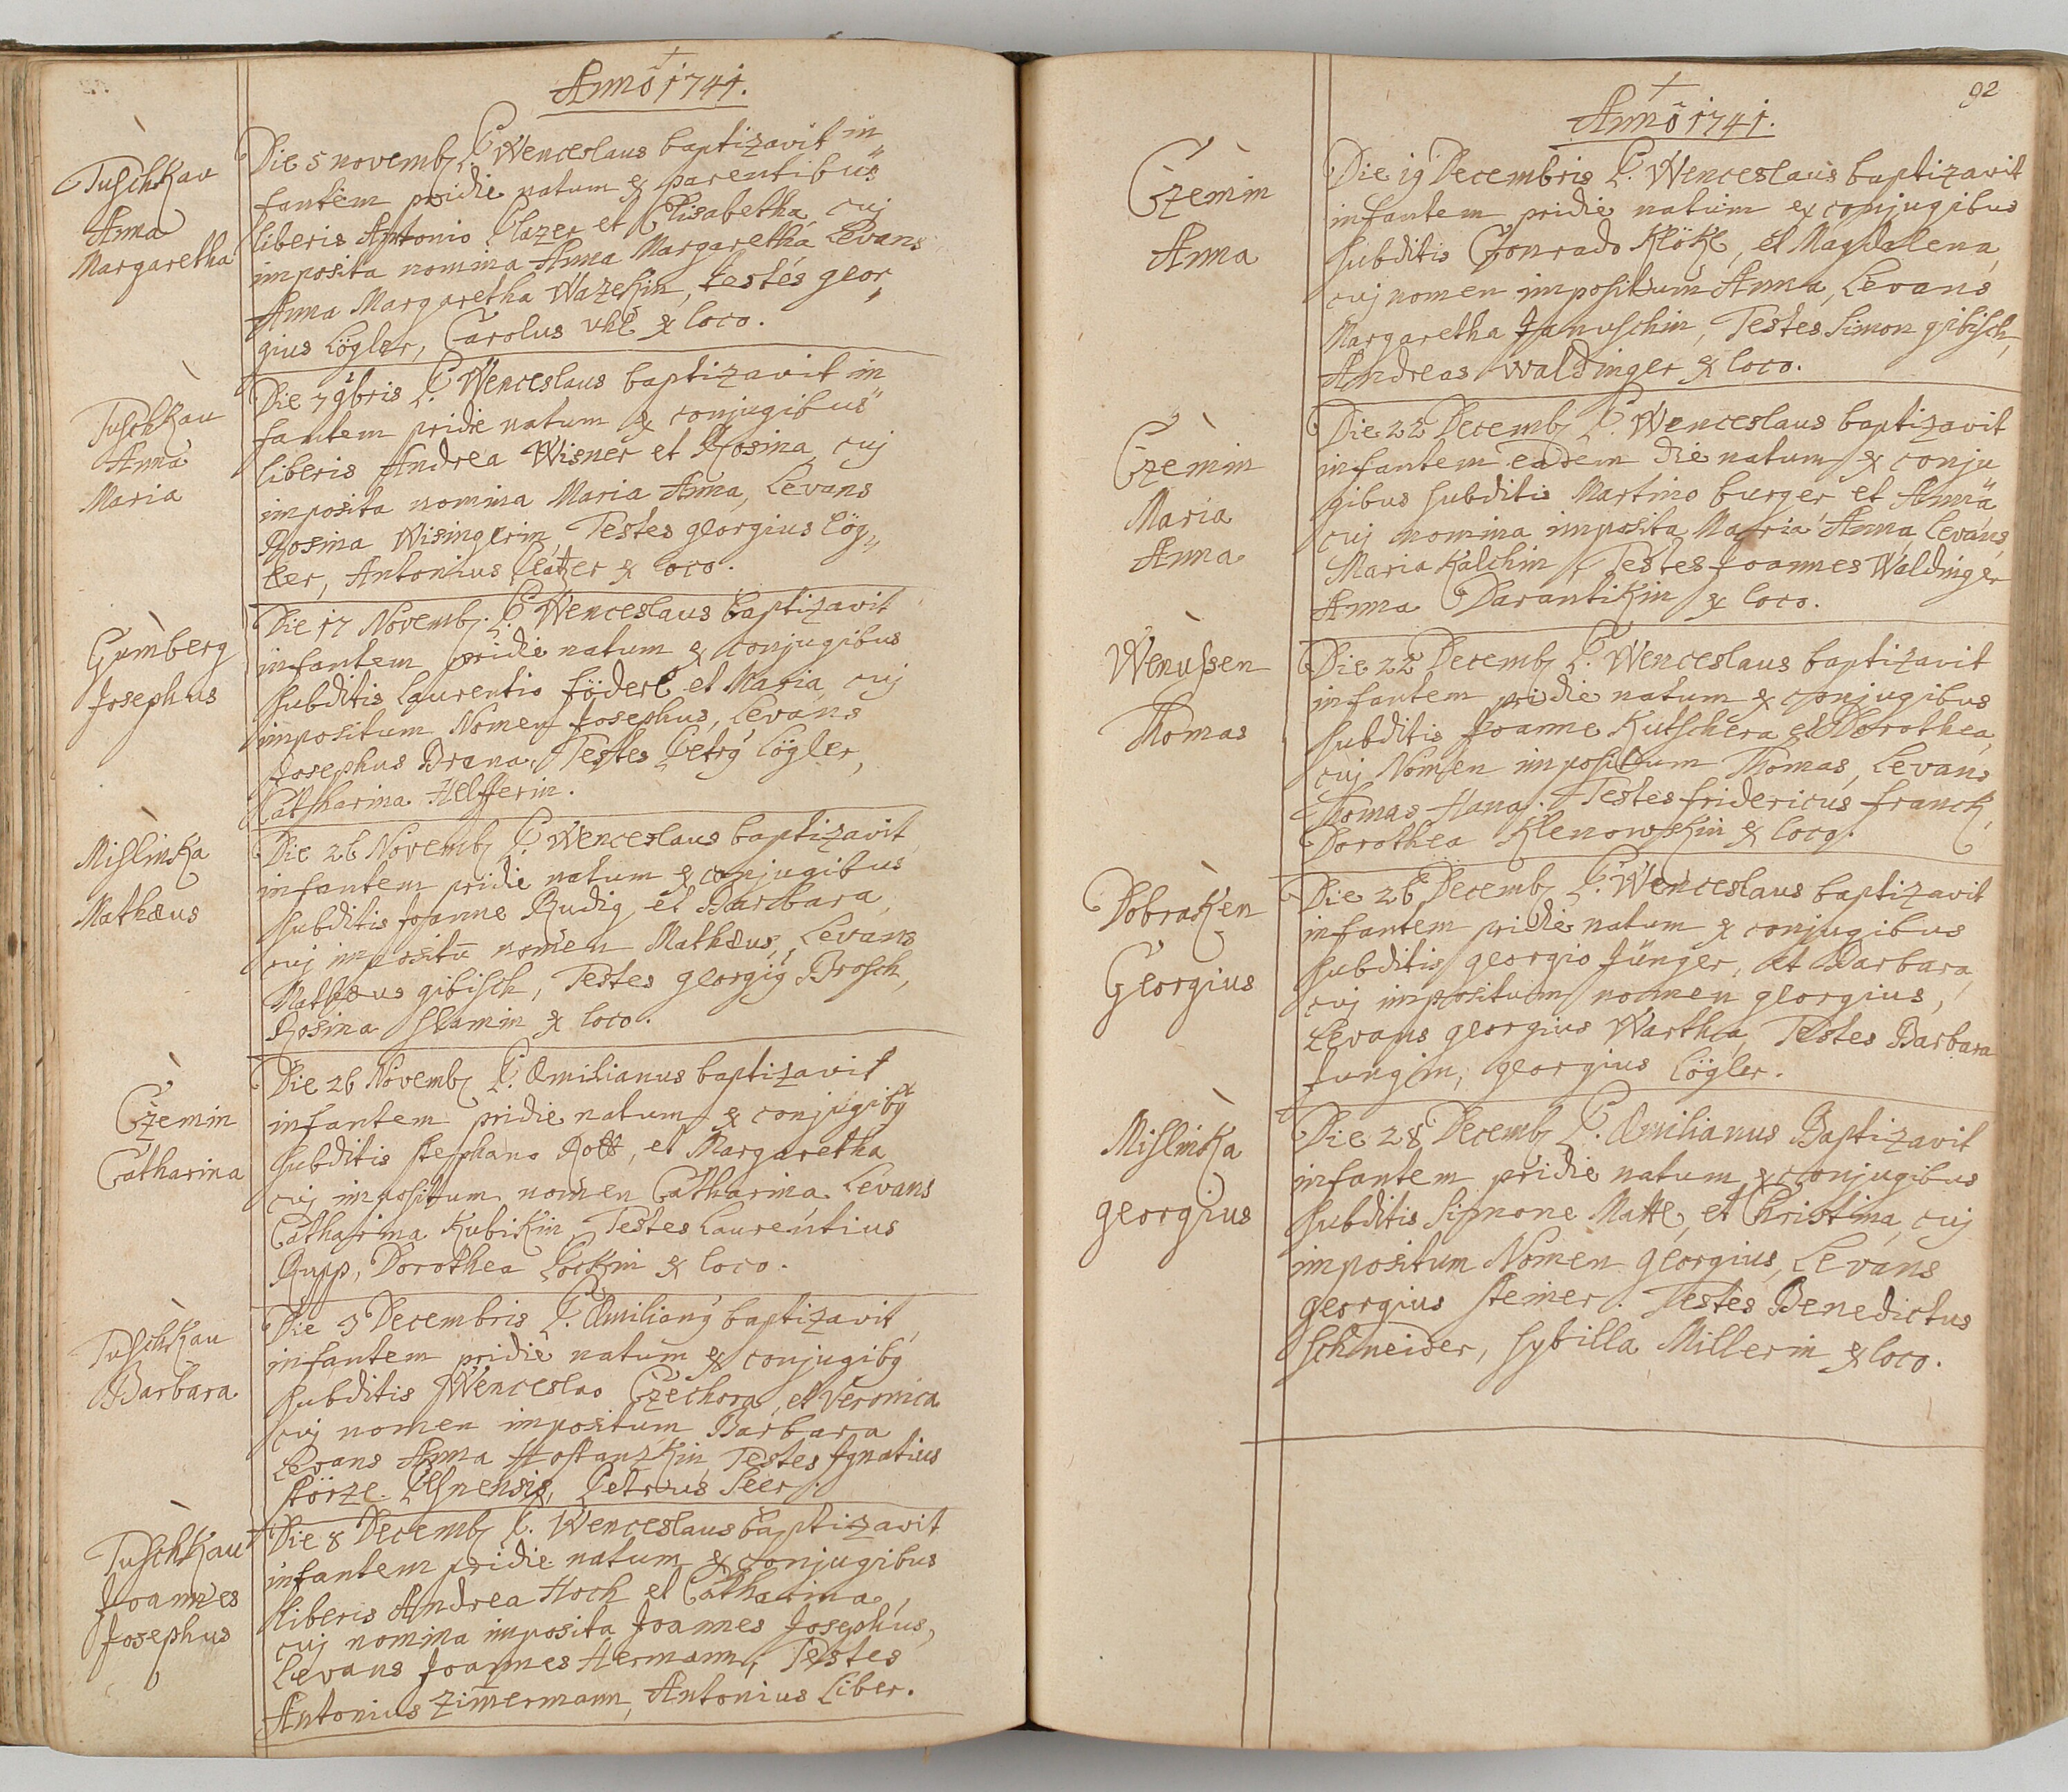 Anno 1741.
Tuschkau
Anna
Margaretha
Die 5 novemb. P. Wenceslaus baptizavit in
fantem pridie natum ex parentibus
liberis Antonio Plazer et Elisabetha, cuj
imposita nomina Anna Margaretha Levans
Anna Margaretha Wazekin, testes geor
gius Lögler, Carolus Uhl ex loco.
Tuschkau
Anna
Maria
Die 7 9bris P. Wenceslaus baptizavit in
fantem pridie natum ex conjugibus
liberis Andrea Wisner et Rosina cuj
imposita nomina Maria Anna, Levans
Rosina Wisingerin Testes georgius Lög
ler, Antonius Platzer ex loco.
Gumberg
Josephus
Die 17 Novemb. P. Wenceslaus baptizavit
infantem pridie natum ex conjugibus
subditis Laurentio föderl et Maria, cuj
impositum Nomen Josephus, Levans
Josephus Brana, Testes Petrg Lögler,
Catharina Helfferin.
Mislinka
Mathæus
Die 26 Novemb. P. Wenceslaus baptizavit
infantem pridie natum ex conjugibus
subditis Joanne Rudig, et Barbara,
cuj impositū nomen Mathæus, Levans
Mathæus gibisch, Testes georgig Brosch,
Rosina slamin ex loco.
Czemin
Catharina
Die 26 Novemb. P. Æmilianus baptizavit
infantem pridie natum ex conjugibg
subditis stephano Rott, et Margaretha
cuj impositum nomen Catharina Levans
Catharina Kubikin, Testes Laurentius
Rupp, Dorothea Pockin ex loco.
Tuschkau
Barbara
Die 3 Decembris P. Æmiliang baptizavit,
infantem pridie natum ex conjugibg
subditis Wenceslao Czechora, et Veronica
cuj nomen impositum Barbara
Levans Anna Hostanzkin, Testes Ignatius
störze Pilsnensis, Petrus Seer.
Tuschkau
Joannes
Josephus
Die 8 Decemb. P. Wenceslaus baptizavit
infantem pridie natum ex conjugibus
liberis Andrea Hoch et Catharina,
cuj nomina imposita Joannes Josephus,
Levans Joannes Hermann, Testes
Antonius Zimermann, Antonius Liber.
92
Anno 1741.
Czemin
Anna
Die 19 Decembris P. Wenceslaus baptizavit
infantem pridie natum ex conjugibus
subditis Conrado Klökl, et Magdalena,
cuj nomen impositum Anna, Levans
Margaretha Januschin, Testes Simon gibisch,
Andreas Waldinger ex loco.
Czemin
Maria
Anna
Die 22 Decemb. P. Wenceslaus baptizavit
infantem eadem die natum ex conju
gibus subditis Martino burger et Anna
cuj nomina imposita Maria Anna, Levans
Maria Kalchin, Testes Joannes Waldinger
Anna Darantikin ex loco.
Wenussen
Thomas
Die 22 Decemb. P. Wenceslaus baptizavit
infantem pridie natum ex conjugibus
subditis Joanne Kutschera et Dorothea,
cuj Nomen impositum Thomas, Levans
Thomas Hana. Testes fridericus franck,
Dorothea Klenowskin ex loco.
Dobraken
Georgius
Die 26 Decemb. P. Wenceslaus baptizavit
infantem pridie natum ex conjugibus
subditis georgio Jünger, et Barbara,
cuj impositum nomen georgius,
Levans georgius Wartha, Testes Barbara
Jungin, georgius Lögler.
Mislinka
georgius
Die 28 Decemb. P. Æmilianus Baptizavit
infantem pridie natum ex conjugibus
subditis Simone Matte, et Christina, cuj
impositum Nomen georgius, Levans
georgius steiner. Testes Benedictus
schneider, sybilla Millerin ex loco.